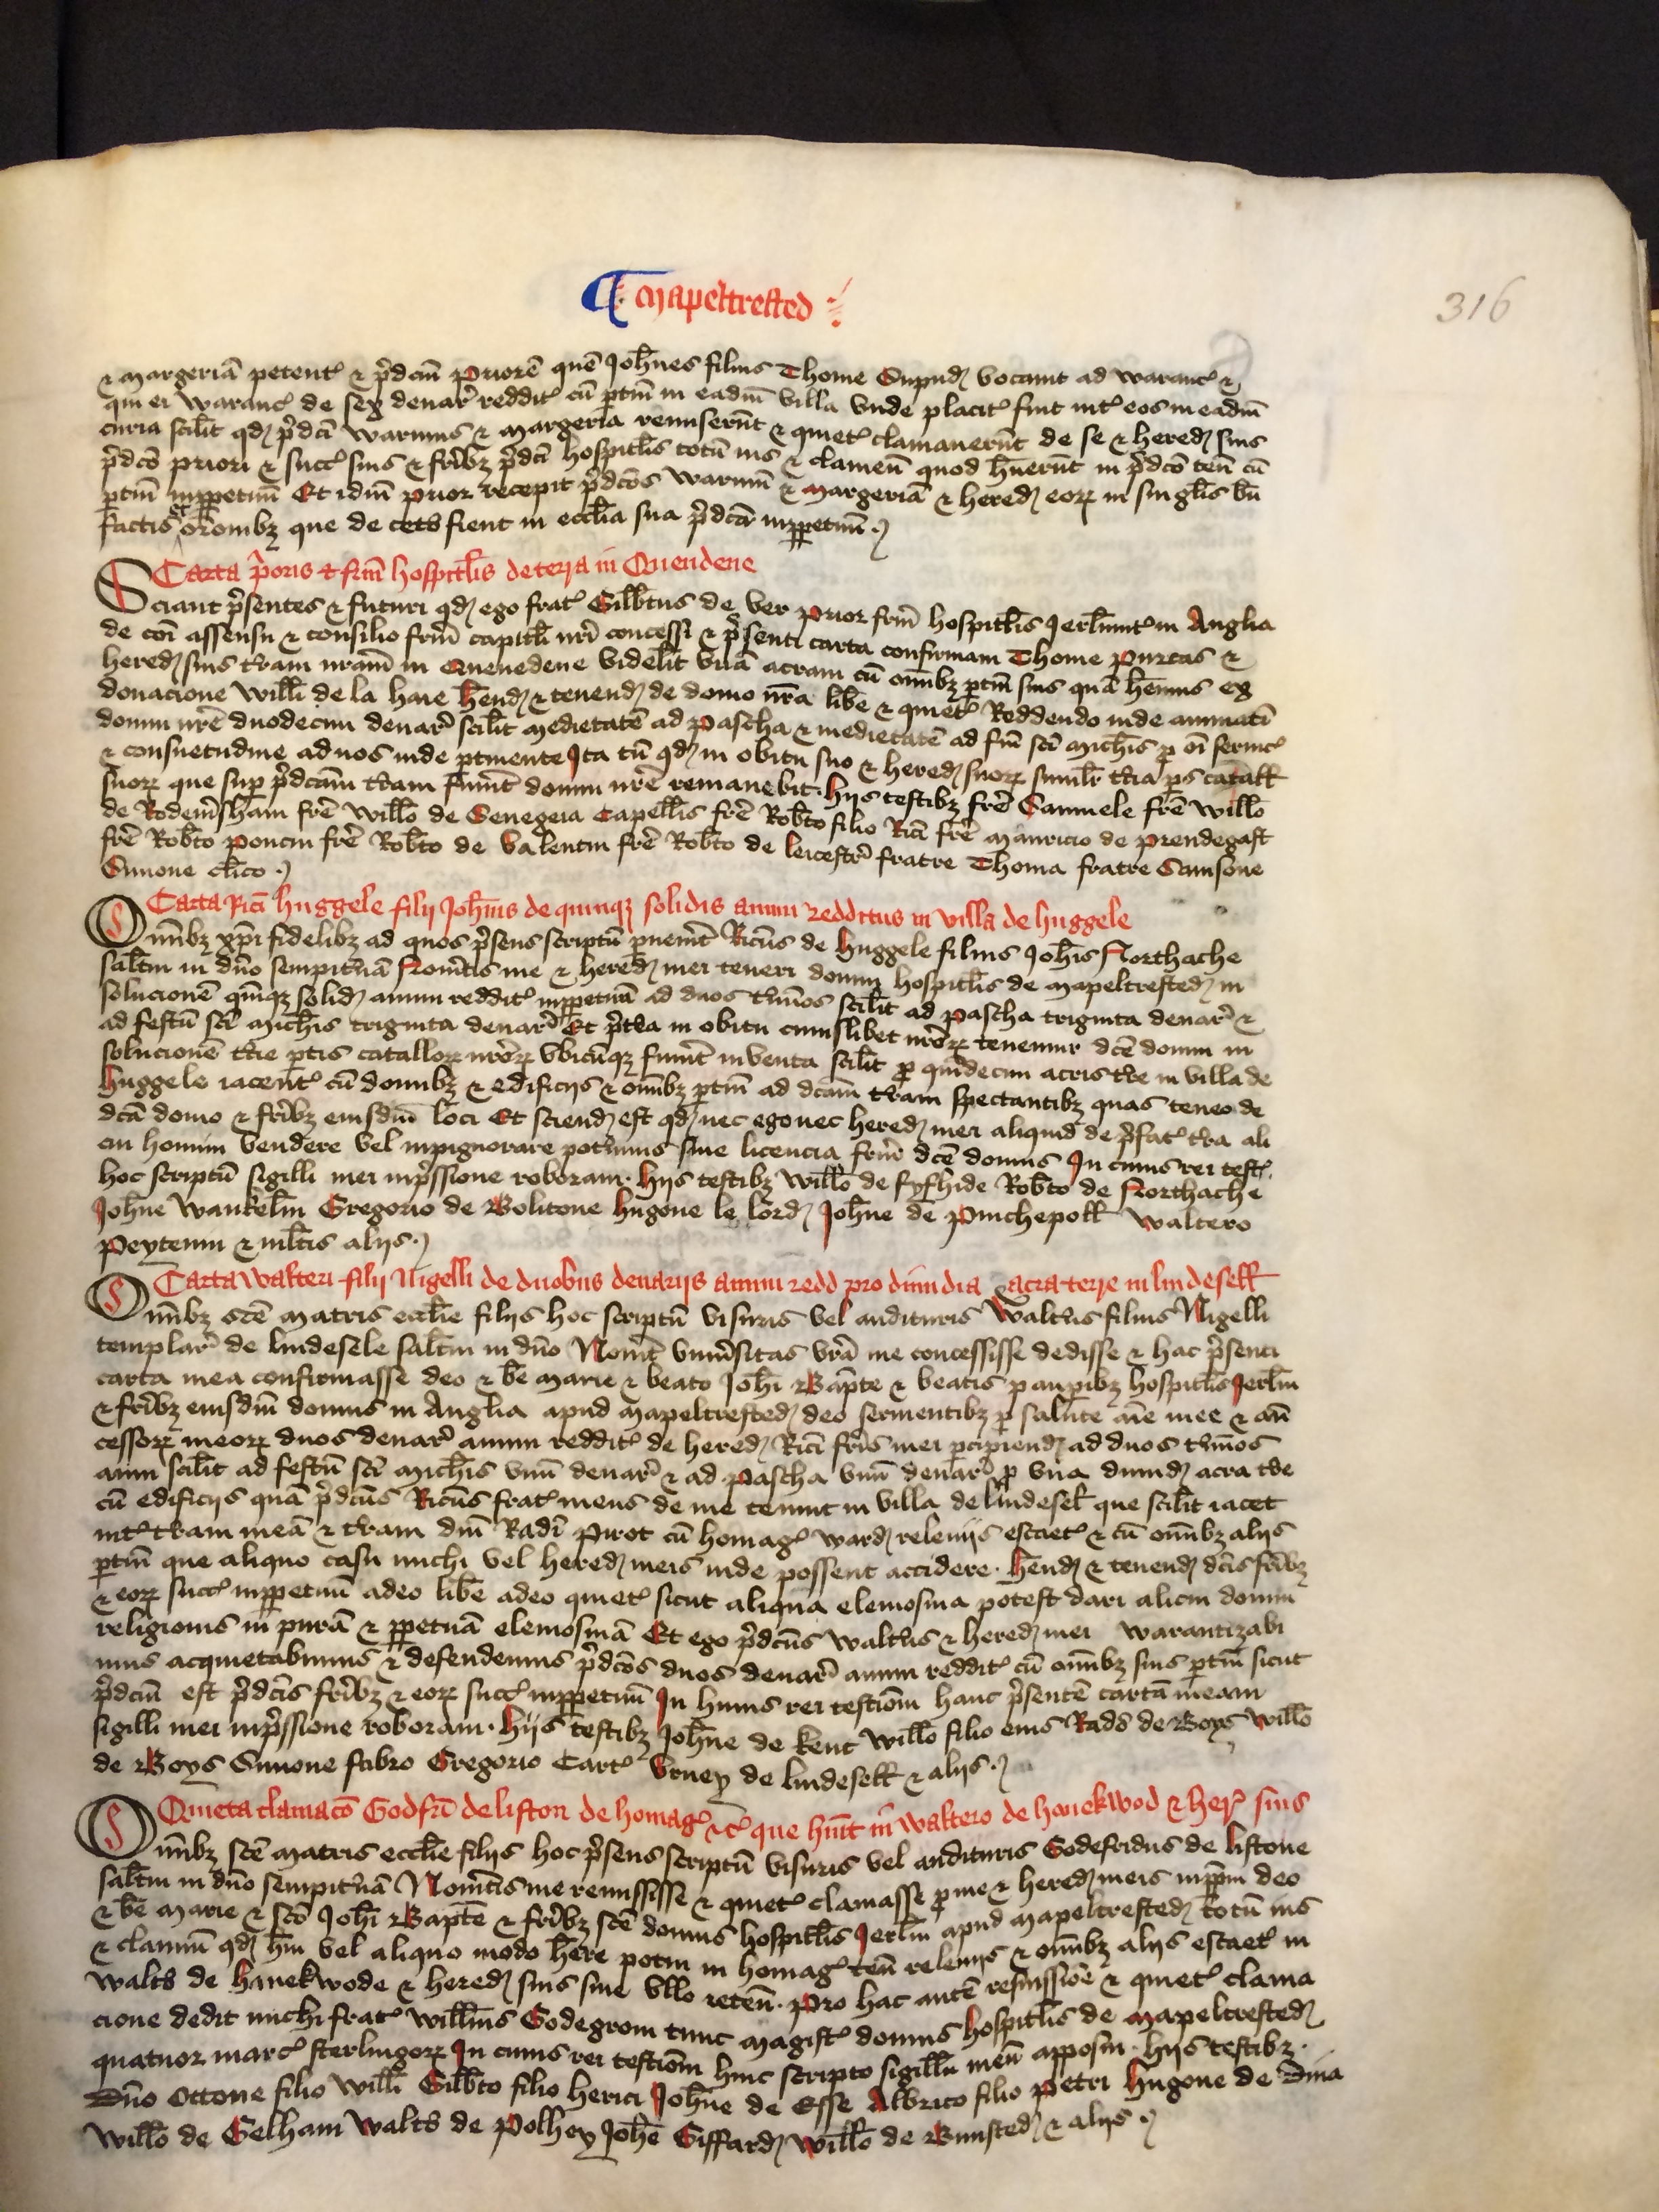 ¶ Mapeltrested
316
⁊ Margeriā petent᷒ ⁊ p̄dcm̄ Priorē quē Joh̄nes filius Thome Supnd᷒ vocauit ad Waranc᷒ ⁊
qui ei Waranc᷒ de sex denar᷒ reddit᷒ cū ptin̄ in eadm̄ villa vnde placit᷒ fuit int᷒ eos in eadm̄
curia scilit qd᷒ p̄dci Warinus ⁊ Margeria remiserūt ⁊ quiet᷒ clamauerūt de se ⁊ hered᷒ suis
p̄dcō priori ⁊ succ᷒ suis ⁊ frib₃ p̄dci hospitlis totū ius ⁊ clameū quod hūerūt in p̄dcō ten̄ cū
ptin̄ inppetuū Et idm̄ prior recepit p̄dcōs Warinū ⁊ Margeriā ⁊ hered᷒ eoꝝ in singlis bn̄
factis ⁊ oronib₃ que de ceto fient in eccl̄ia sua p̄dcā inppetuū
Carta p̄oris ⁊ frm̄ hospitl̄is de terra in Quendene
Sciant p̄sentes ⁊ futuri qd᷒ ego frat᷒ Gilb̄tus de Ver prior frm̄ hospitl̄is Jerlīmit᷒ in Anglia
de coi assensu ⁊ consilio frm̄ capitli nr̄i concessi ⁊ p̄senti carta confirmaui Thome Purcas ⁊
hered᷒ suis t̄ram nrām in Quenedene videlit vnā acram cū om̄ib₃ ptin̄ suis quā hēmus ex
donacione Willi de la Haie hēnd᷒ ⁊ tenend᷒ de domo nr̄a libe ⁊ quiet᷒ Reddendo inde annuati
domui nr̄e duodecim denar᷒ scilit medietatē ad Pascha ⁊ medietatē ad fm̄ sci Mich̄is p oī seruic᷒
⁊ consuetudine ad nos inde ptinente Ita tn̄ qd᷒ in obitu suo ⁊ hered᷒ suoꝝ similr t̄cia ps catall
suoꝝ que sup p̄dcām t̄ram fuint domui nr̄e remanebit. Hijs testib₃ frē Samuele frē Willo
de Rodem̄sham frē Willo de Senegeia Capellis frē Rob̄to filio Rici frē Mauricio de Prendegast
frē Rob̄to Poncin frē Rob̄to de Valentin frē Rob̄to de Leicestr᷒ fratre Thoma fratre Samsone
Simone clico
Carta Rici Huggele filij Joh̄nis de quinq₃ solidis annui redditus in villa de Huggele
Om̄ib₃ xpi fidelib₃ ad quos p̄sens scriptū puenit Ricus de Huggele filius Joh̄is Northache
saltm̄ in dn̄o sempit̄nā Nou̅itis me ⁊ hered᷒ mei teneri domui hospitl̄is de Mapeltrested᷒ in
solucionē quīq₃ solid᷒ annui reddit᷒ inppetuū ad duos t̄mios scilit ad Pascha triginta denar᷒ ⁊
ad festū sci Mich̄is triginta denar᷒ Et p̄t̄ea in obitu cuiuslibet nr̄oꝝ tenemur dcē domui in
solucionē t̄cie ptis catalloꝝ nr̄oꝝ vbicūq₃ fuint inuenta scilit p quīdecim acris t̄re in villa de
Huggele iacent᷒ cū domib₃ ⁊ edificijs ⁊ om̄ib₃ ptin̄ ad dcām t̄ram spectantib₃ quas teneo de
dcā domo ⁊ frib₃ eiusdm̄ loci Et sciend᷒ est qd᷒ nec ego nec hered᷒ mei aliquid de p̄fat᷒ t̄ra ali
cui homini vendere vel inpignorare pot̄imus sine licencia frm̄ dcē domus In cuius rei test᷒.
hoc scriptū sigilli mei inp̄ssione roboraui. Hijs testib₃ Willo de Fyfhide Rob̄to de Northache
Joh̄ne Wankelin Gregorio de Bolitone Hugone le Lord᷒ Joh̄ne de Pinchepoll Waltero
Peyteuin ⁊ mltis alijs
Carta Walteri filij Nigelli de duobus denarijs annui redd pro dimidia acra terre in Lindesell
Om̄ib₃ scē matris eccl̄ie filijs hoc scriptū visuris vel audituris Walt̄us filius Nigelli
templar᷒ de Lindesele saltm̄ in dn̄o Nou̅it vniu̅sitas vrā me concessisse dedisse ⁊ hac p̄senti
carta mea confirmasse deo ⁊ be Marie ⁊ beato Joh̄i Bap̄te ⁊ beatis paupib₃ hospitl̄is Jerlm̄
⁊ frib₃ eiusdm̄ domus in Anglia apud Mapeltrested᷒ deo seruientib₃ p salute aīe mee ⁊ an̄
cessoꝝ meoꝝ duos denar᷒ annui reddit᷒ de hered᷒ Rici fr̄is mei pcipiend᷒ ad duos t̄mios
anni scilit ad festū sci Mich̄is vnū denar᷒ ⁊ ad Pascha vnū denar᷒ p vna dimid᷒ acra t̄re
cū edificijs quā p̄dcus Ricus frat᷒ meus de me tenuit in villa de Lindesel que scilit iacet
int᷒ t̄ram meā ⁊ t̄ram dni Radi Pirot cū homag᷒ ward᷒ releuijs escaet᷒ ⁊ cū om̄ib₃ alijs
ptin̄ que aliquo casu michi vel hered᷒ meis inde possent accidere. Hēnd᷒ ⁊ tenend᷒ dcis frib₃
⁊ eoꝝ succ᷒ inppetuū adeo libe adeo quiet᷒ sicut aliqua elemosina potest dari alicui domui
religionis in purā ⁊ ppetuā elemosinā Et ego p̄dcus Walt̄us ⁊ hered᷒ mei warantizabi
mus acquietabimus ⁊ defendemus p̄dcōs duos denar᷒ annui reddit᷒ cū om̄ib₃ suis ptin̄ sicut
p̄dcm̄ est p̄dcis frib₃ ⁊ eoꝝ succ᷒ inppetuū In huius rei testiōm hanc p̄sentē cartā meam
sigilli mei inp̄ssione roboraui. Hijs testib₃ Joh̄ne de Kent Willo filio eius Rado de Boys Willo
de Boys Simone fabro Gregorio Cart᷒ Vrney de Lindesell ⁊ alijs
Quieta clamacō Godfri de Liston de homag᷒ ⁊c᷒ que huit in Waltero de Hanekwod ⁊ her᷒ suis
Om̄ib₃ scē matris eccl̄ie filijs hoc p̄sens scriptū visuris vel audituris Godefridus de Listone
saltm̄ in dn̄o sempit̄nā Nou̅itis me remississe ⁊ quiet᷒ clamasse p me ⁊ hered᷒ meis inppm̄ deo
⁊ be Marie ⁊ scō Joh̄i Bapte ⁊ frib₃ scē domus hospitl̄is Jerlm̄ apud Mapeltrested᷒ totū ius
⁊ clamiū qd᷒ hui vel aliquo modo hēre potui in homag᷒ ten̄ releuijs ⁊ om̄ib₃ alijs escaet᷒ in
Walto de Hanekwode ⁊ hered᷒ suis sine vllo reten̄. Pro hac autē remissiōe ⁊ quiet᷒ clama
cione dedit michi frat᷒ Willm̄s Godegrom tunc magist᷒ domus hospitl̄is de Mapeltrested᷒
quatuor marc᷒ sterlingoꝝ In cuius rei testiōm huic scripto sigillū meū apposui. Hijs testib₃.
Dn̄o Ottone filio Willi Gilb̄to filio Herici Joh̄ne de Esse Albrico filio Petri Hugone de Diua
Willo de Gelham Walto de Polhey Joh̄e Giffard᷒ Willo de Bumsted᷒ ⁊ alijs